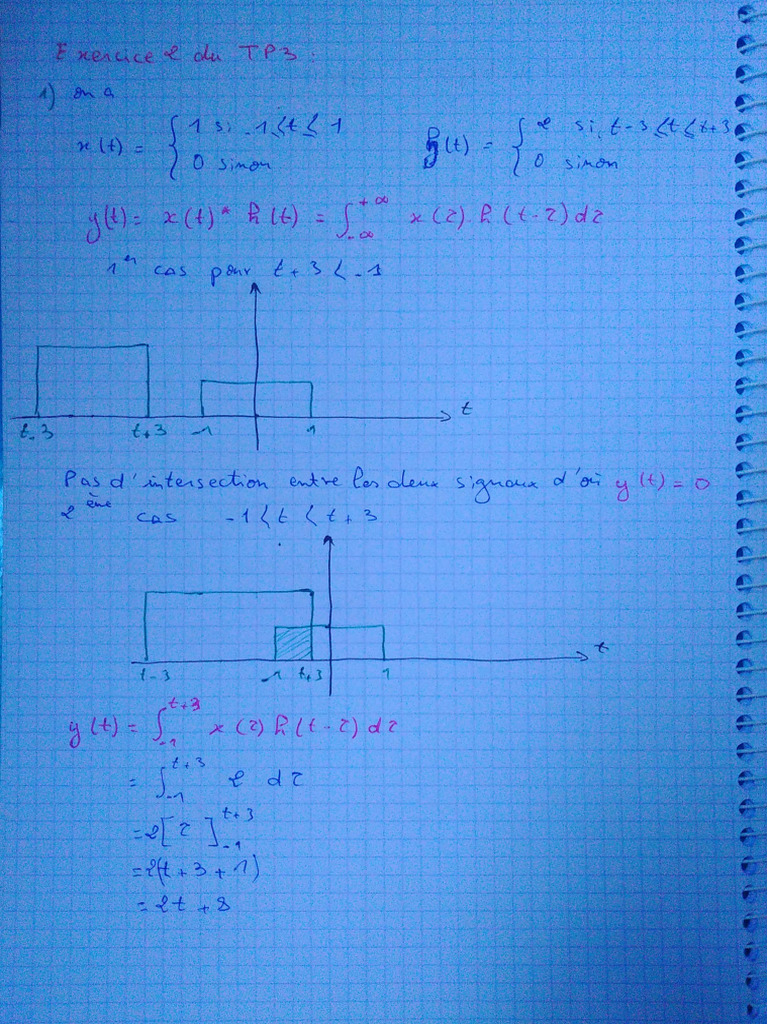 Exercice 2 du TP3 :
1) on a
x(t) = { 1 si -1 ≤ t ≤ 1
0 sinon
h(t) = { 2 si t-3 ≤ t ≤ t+3
0 sinon
y(t) = x(t) * h(t) = ∫_{-∞}^{+∞} x(τ) h(t-τ) dτ
1er cas pour t+3 < -1
t-3 t+3 -1 1 t
Pas d'intersection entre les deux signaux d'où y(t) = 0
2ème cas -1 < t < t+3
t-3 -1 t+3 1 t
y(t) = ∫_{-1}^{t+3} x(τ) h(t-τ) dτ
= ∫_{-1}^{t+3} 2 dτ
= 2[τ]_{-1}^{t+3}
= 2(t+3+1)
= 2t+8